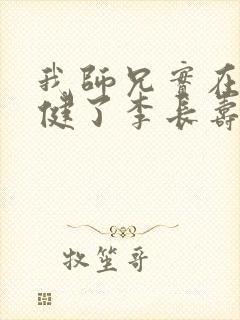 我師兄實在
健了李長壽
牧笙哥